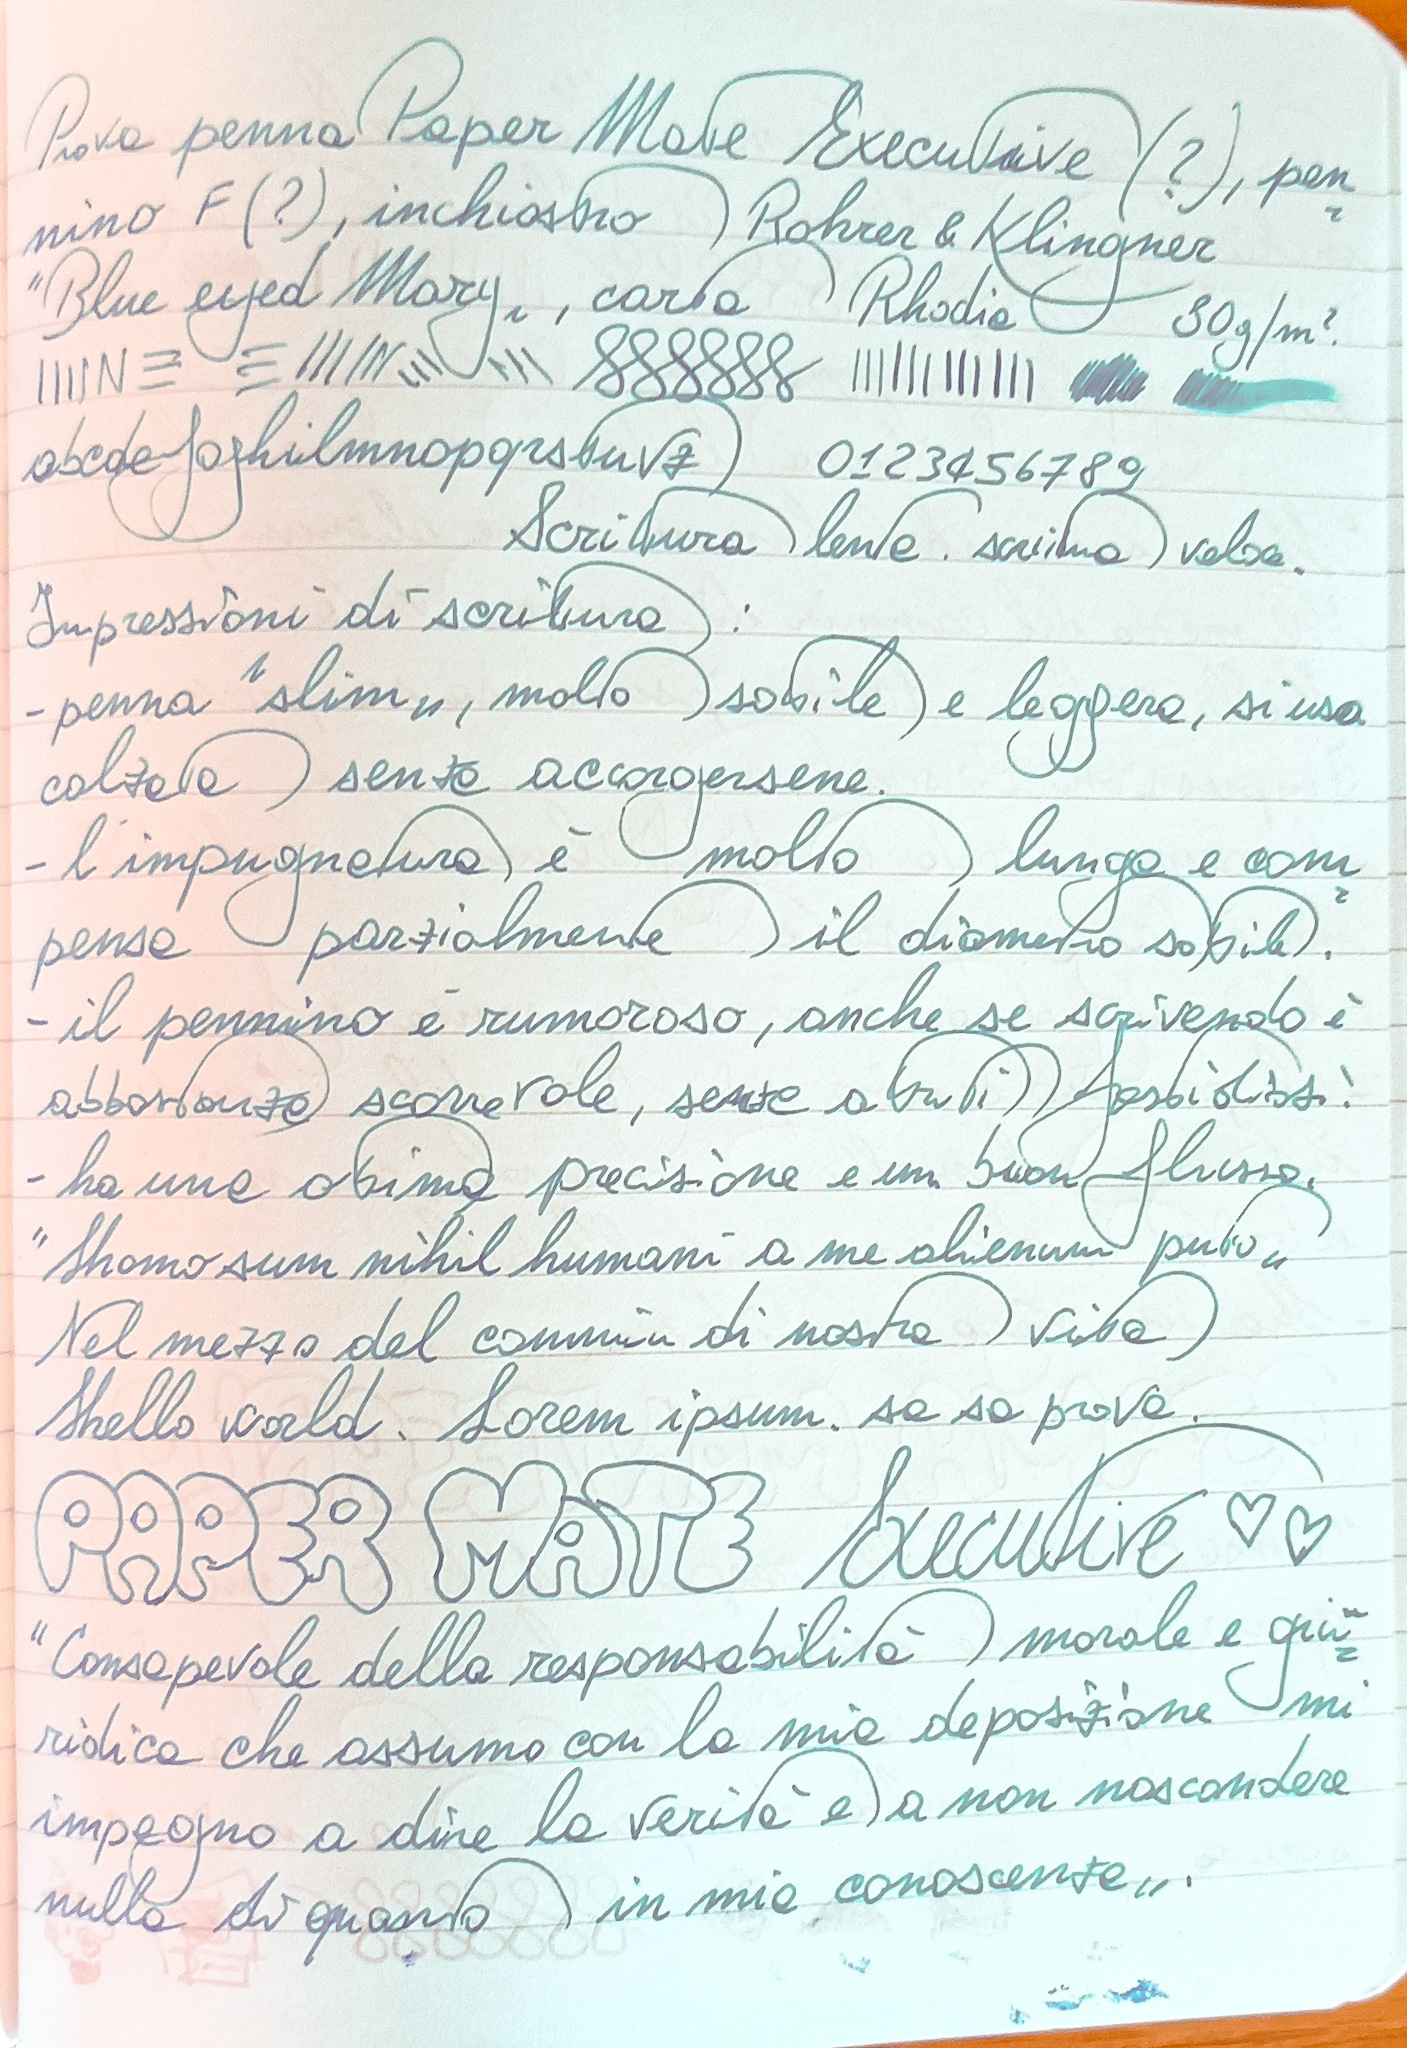 Prova penna Paper Mate Executive (?), pen=
nino F (?), inchiostro Rohrer & Klingner
"Blue eyed Mary", carta Rhodia 90g/m².
abcdefghilmnopqrstuvz 0123456789
Scrittura lenta. scrittura veloce.
Impressioni di scrittura:
- penna "slim", molto sottile e leggera, si usa
calzata senza accorgersene.
- l'impugnatura è molto lunga e com=
pensa parzialmente il diametro sottile.
- il pennino è rumoroso, anche se scrivendo è
abbastanza scorrevole, senza attriti fastidiosi.
- ha una ottima precisione e un buon flusso.
"Homo sum nihil humani a me alienum puto"
Nel mezzo del cammin di nostra vita
Hello world. Lorem ipsum. sa sa prova.
PAPER MATE Executive ♡♡
"Consapevole della responsabilità morale e giu=
ridica che assumo con la mia deposizione mi
impegno a dire la verità e a non nascondere
nulla di quanto in mia conoscenza".